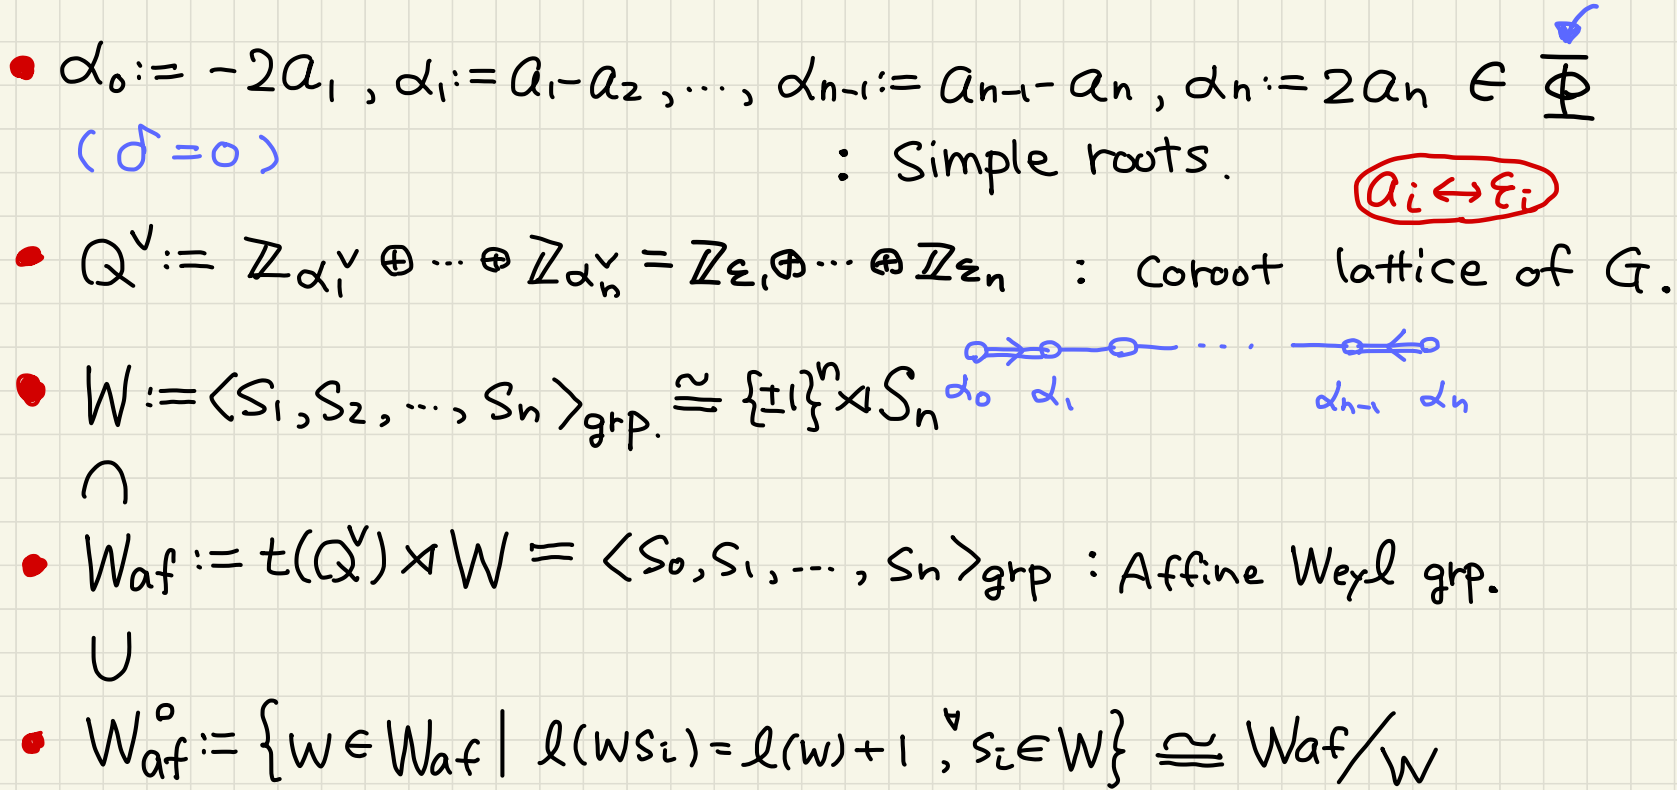 • α₀ := -2a₁, α₁ := a₁-a₂, ..., αₙ₋₁ := aₙ₋₁-aₙ, αₙ := 2aₙ ∈ Φ
(δ=0) : Simple roots.
aᵢ ↔ εᵢ
• Q^∨ := ℤα₁^∨ ⊕ ... ⊕ ℤαₙ^∨ = ℤε₁ ⊕ ... ⊕ ℤεₙ : coroot lattice of G.
• W := <S₁, S₂, ..., Sₙ>grp. ≅ {±1}ⁿ ⋊ Sₙ
α₀ α₁ ... αₙ₋₁ αₙ
∩
• Waf := t(Q^∨) ⋊ W = <S₀, S₁, ..., Sₙ>grp : Affine Weyl grp.
∪
• W°af := {w ∈ Waf | ℓ(wsᵢ) = ℓ(w)+1, ∀sᵢ ∈ W} ≅ Waf/W